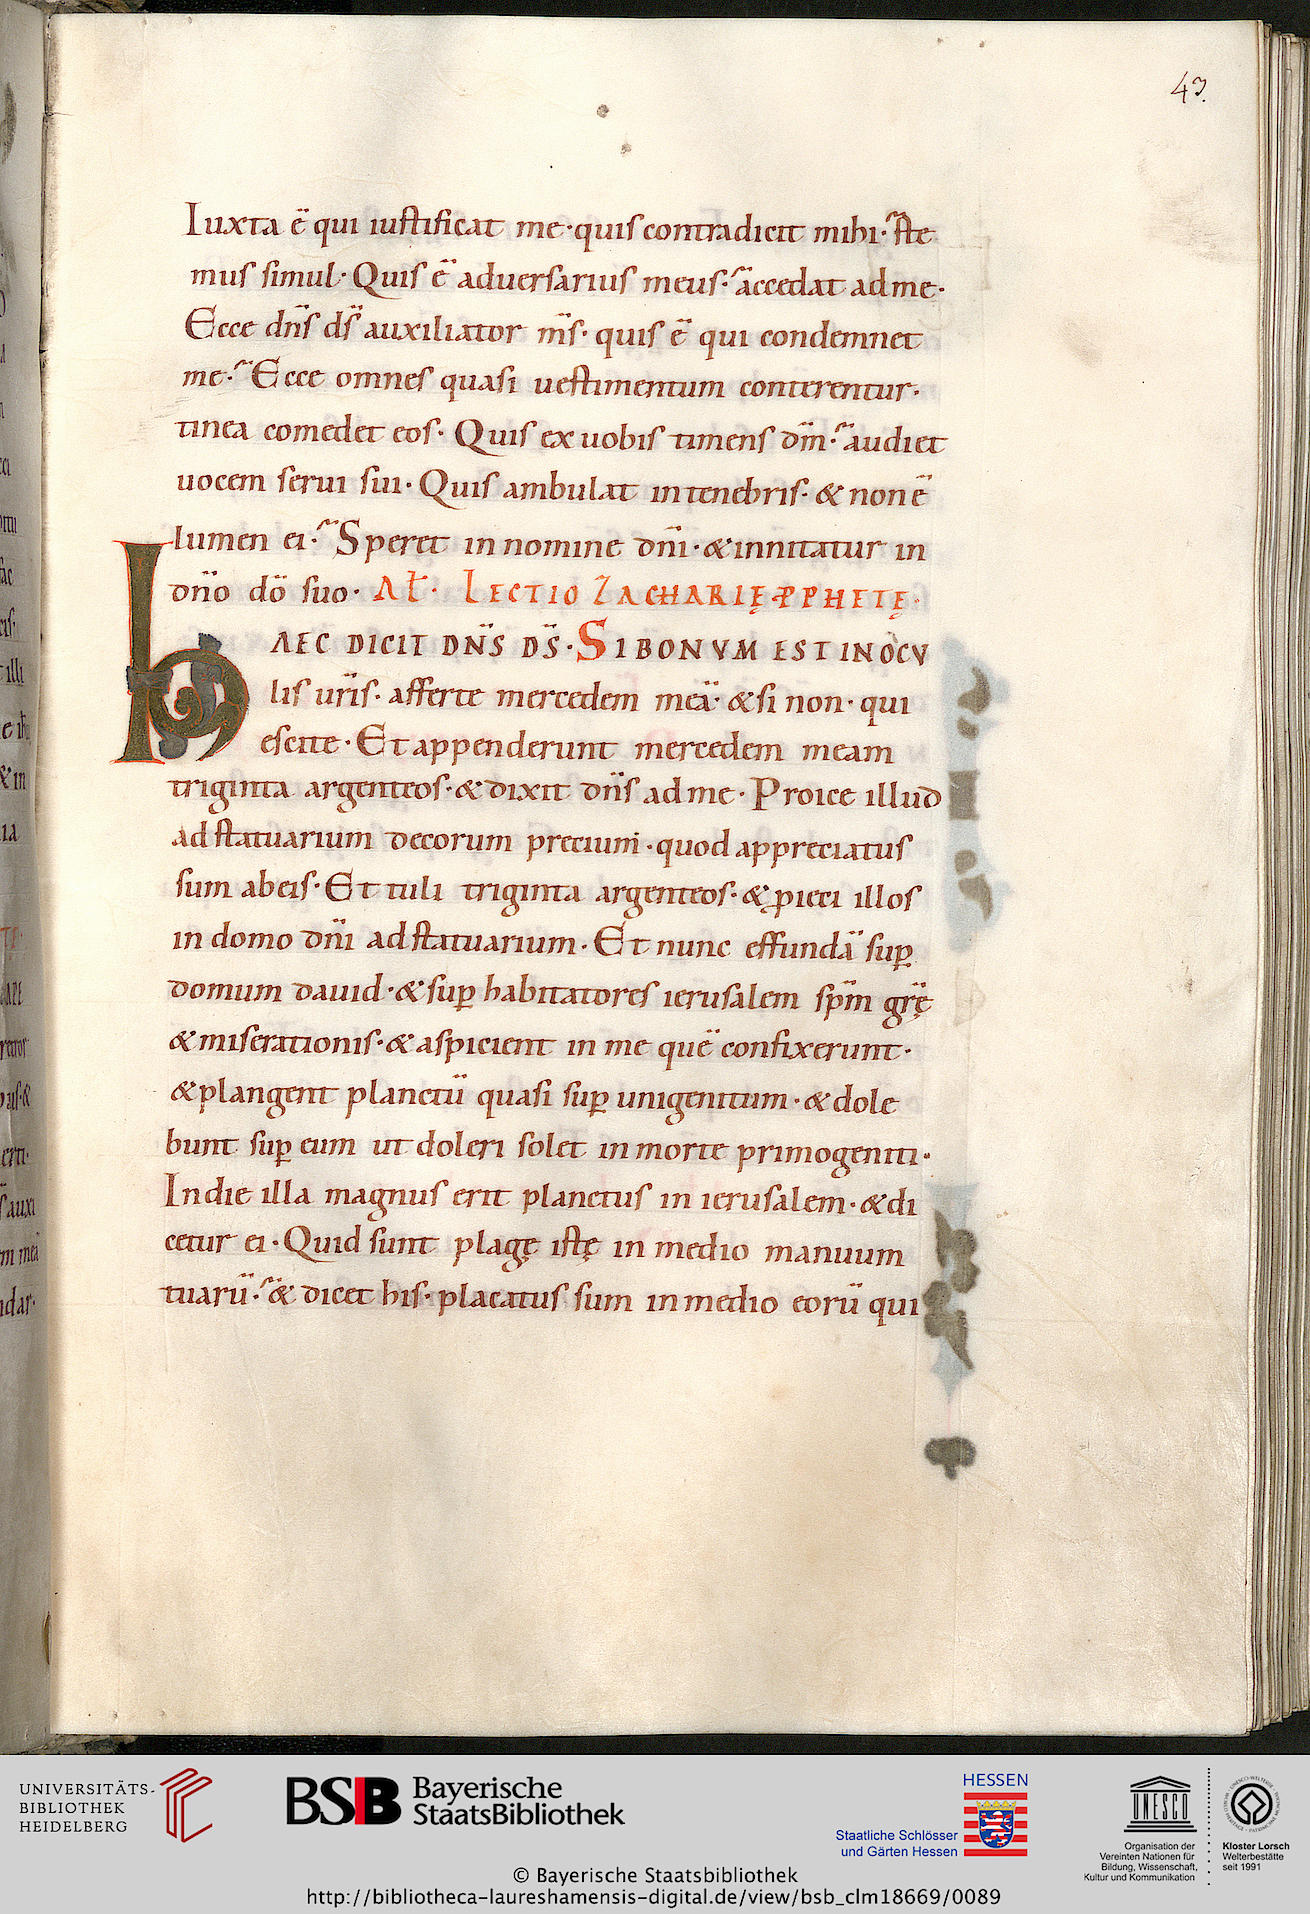 43.
Iuxta ē qui iustificat me · quis contradicit mihi · ste
mus simul · Quis ē aduersarius meus · accedat ad me ·
Ecce dn̄s ds̄ auxiliator m̄s · quis ē qui condemnet
me · Ecce omnes quasi uestimentum conterentur ·
tinea comedet eos · Quis ex uobis timens dm̄ · audiet
uocem serui sui · Quis ambulat in tenebris · & non ē
lumen ei · Speret in nomine dn̄i · & innitatur in
dn̄o dō suo · AŁ · LECTIO ZACHARIĘ PPHETĘ ·
HAEC DICIT DN̄S DS̄ · SI BONVM EST IN OCV
lis ur̄is · afferte mercedem meā · & si non · qui
escite · Et appenderunt mercedem meam
triginta argenteos · & dixit dn̄s ad me · Proice illud
ad statuarium decorum precium · quod appreciatus
sum ab eis · Et tuli triginta argenteos · & ꝓieci illos
in domo dn̄i ad statuarium · Et nunc effundā sup̱
domum dauid · & sup̱ habitatores ierusalem sp̄m gr̄ę
& miserationis · & aspicient in me quē confixerunt ·
& plangent planctū quasi sup̱ unigenitum · & dole
bunt sup̱ eum ut doleri solet in morte primogeniti ·
In die illa magnus erit planctus in ierusalem · & di
cetur ei · Quid sunt plagę istę in medio manuum
tuarū · & dicet his · placatus sum in medio eorū qui
UNIVERSITÄTS-
BIBLIOTHEK
HEIDELBERG
BSB Bayerische
StaatsBibliothek
HESSEN
Staatliche Schlösser
und Gärten Hessen
UNESCO
Organisation der
Vereinten Nationen für
Bildung, Wissenschaft,
Kultur und Kommunikation
Kloster Lorsch
Welterbestätte
seit 1991
© Bayerische Staatsbibliothek
http://bibliotheca-laureshamensis-digital.de/view/bsb_clm18669/0089